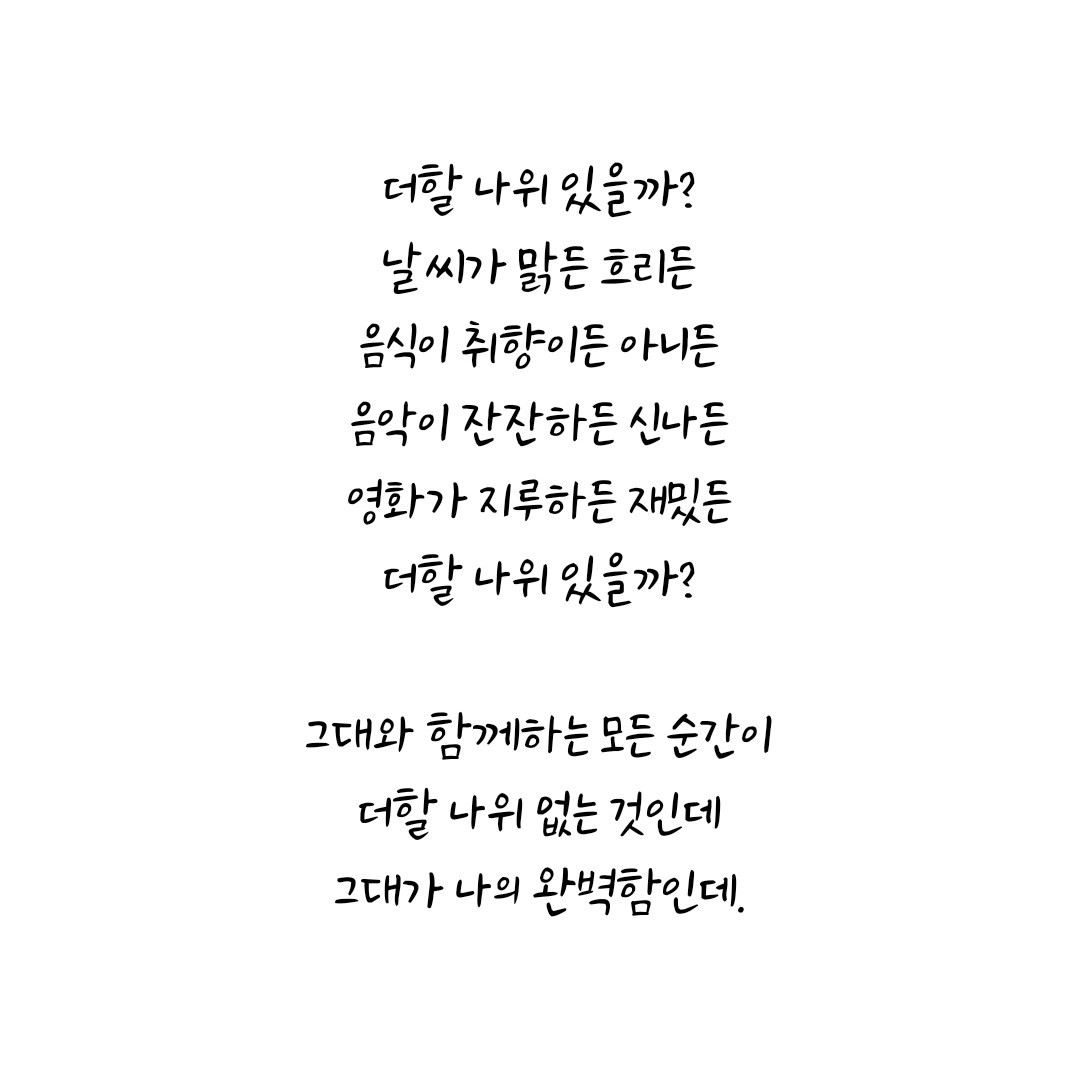 더할 나위 있을까?
날씨가 맑든 흐리든
음식이 취향이든 아니든
음악이 잔잔하든 신나든
영화가 지루하든 재밌든
더할 나위 있을까?
그대와 함께하는 모든 순간이
더할 나위 없는 것인데
그대가 나의 완벽함인데.